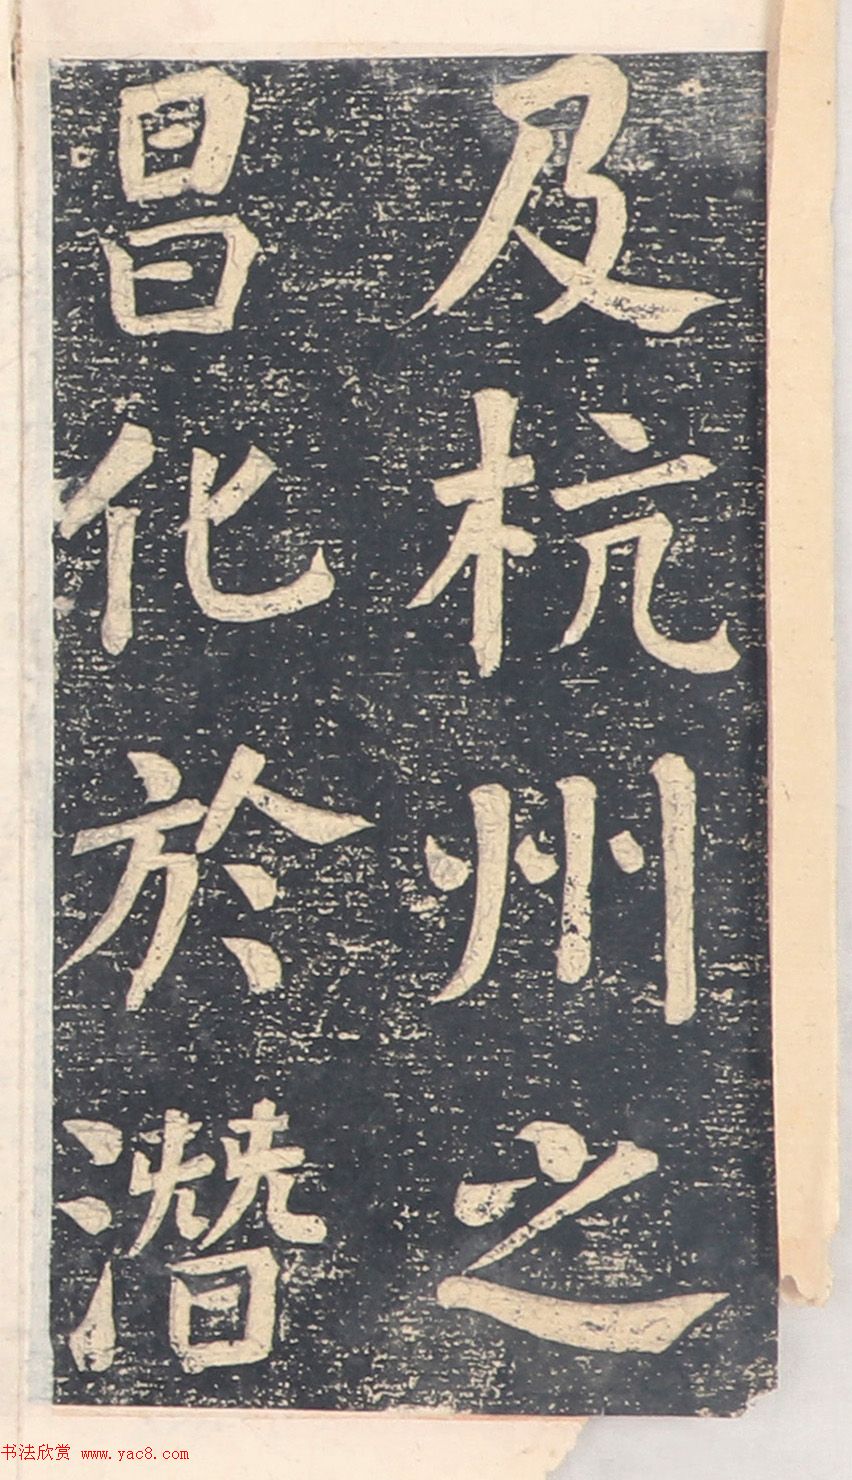 及杭州之
昌化於潛
书法欣赏 www.yac8.com